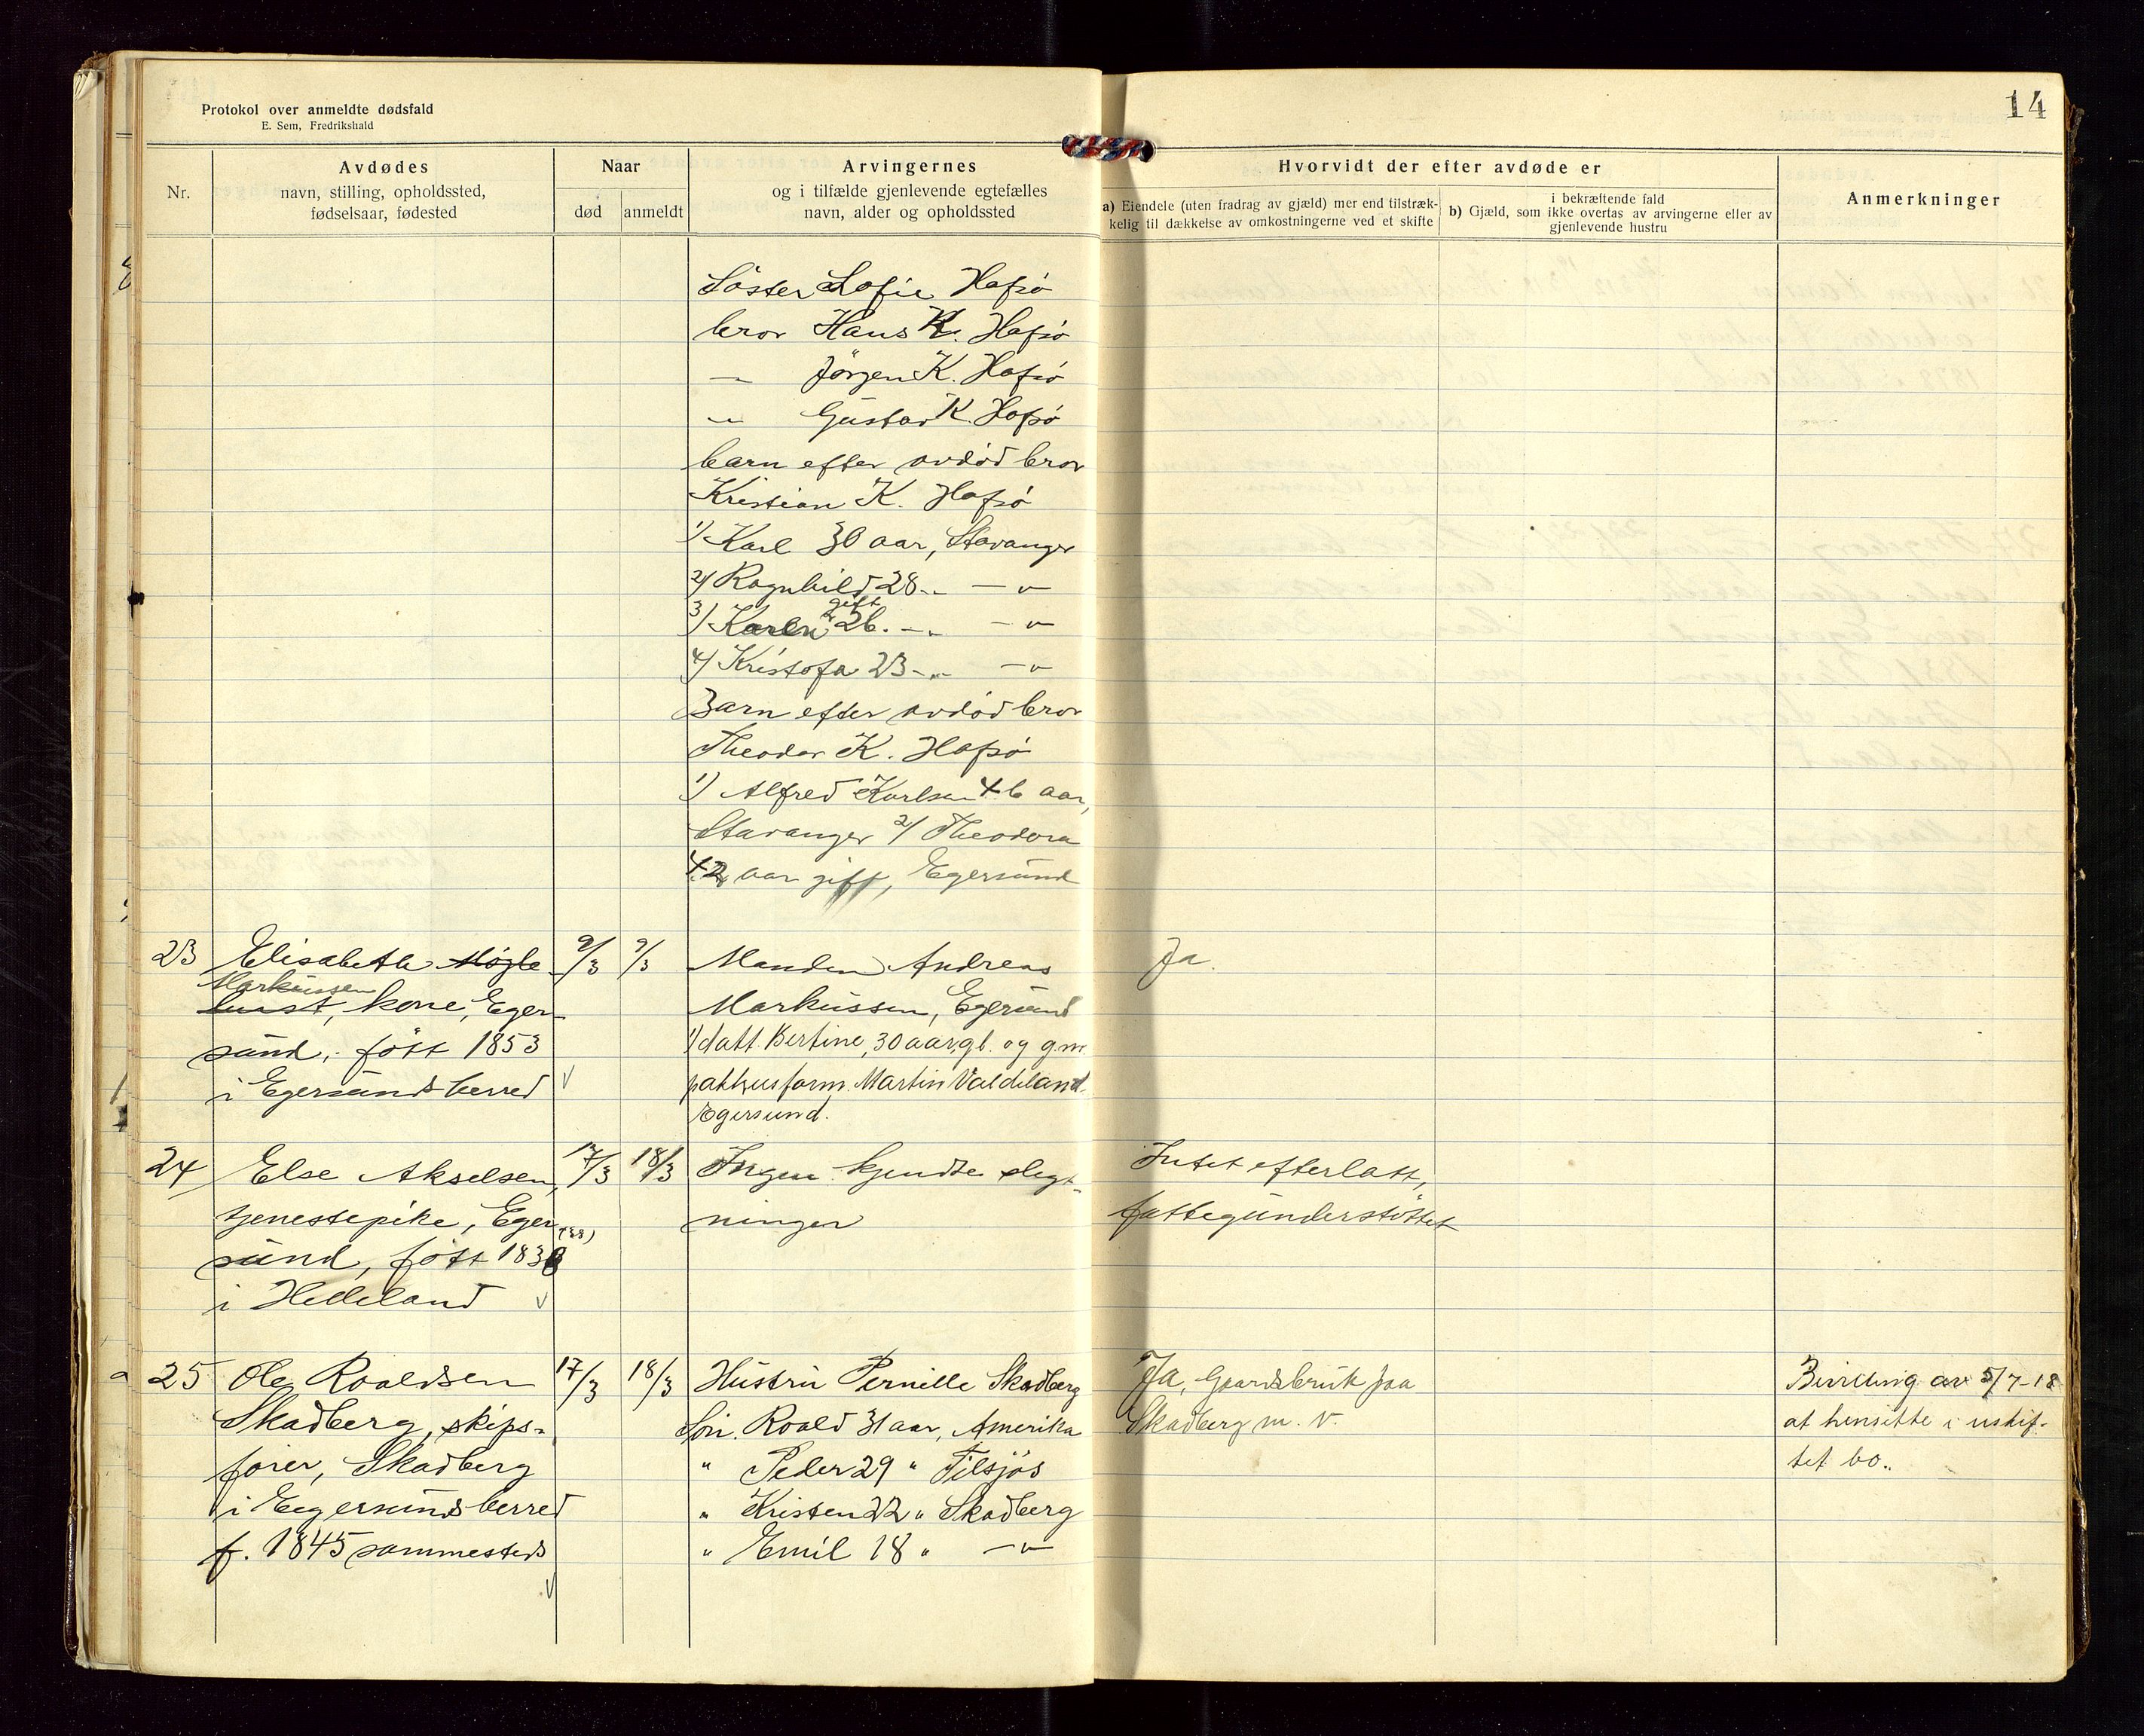 14
Protokol over anmeldte dødsfald
E. Sem, Fredrikshald
Nr.
Avdødes
navn, stilling, opholdssted,
fødselsaar, fødested
Naar
død
anmeldt
Arvingernes
og i tilfælde gjenlevende egtefælles
navn, alder og opholdssted
Hvorvidt der efter avdøde er
a) Eiendele (uten fradrag av gjæld) mer end tilstræk-
kelig til dækkelse av omkostningerne ved et skifte
i bekræftende fald
b) Gjæld, som ikke overtas av arvingerne eller av
gjenlevende hustru
Anmerkninger
Söster Sofie Hafsö
bror Hans K. Hafsö
–"– Jörgen K. Hafsö
–"– Gustav K. Hafsö
barn efter avdöd bror
Kristian K. Hafsö
1) Karl 30 aar, Stavanger
2) Ragnhild 28 -"- –"–
gift
3) Karen 26. -"- –"–
4) Kristofa 23 -"- –"–
Barn efter avdöd bror
Theodor K. Hafsö
1) Alfred Karlsen 46 aar,
Stavanger 2) Theodora
42 aar gift, Egersund
23 Elisabeth Mögle- 9/3 9/3 Manden Andreas Ja.
Markussen
hust, kone, Eger- Markussen, Egersund
sund, født 1853 1) datt. Bertine, 30 aar, gl. og g.m.
i Egersunds herred v pakhusform. Martin Valdeland
Egersund.
24 Else Akselsen, 17/3 18/3 Ingen kjendte slegt- Intet efterlatt,
tjenestepike, Eger- ninger fattigunderstöttet
(38)
sund, født 1838
i Helleland v
25 Ole Roaldsen 17/3 18/3 Hustru Pernille Skadberg Ja, Gaardsbruk paa Bevilling av 5/7-18
Skadberg, skips- Sön. Roald 31 aar, Amerika Skadberg m. v. at hensitte i uskif-
förer, Skadberg " Peder 29 " Tilsjös tet bo.
i Egersunds herred " Kristen 22 " Skadberg
f. 1845 sammesteds " Emil 18 " –"–
v